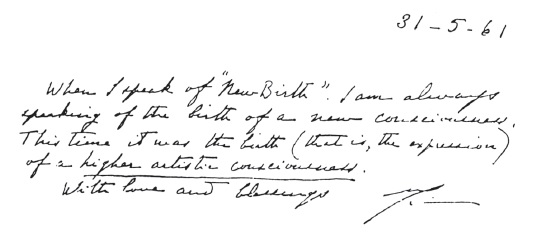 31-5-61
When I speak of "New Birth". I am always
speaking of the birth of a new consciousness.
This time it was the birth (that is, the expression)
of a higher artistic consciousness.
With love and blessings